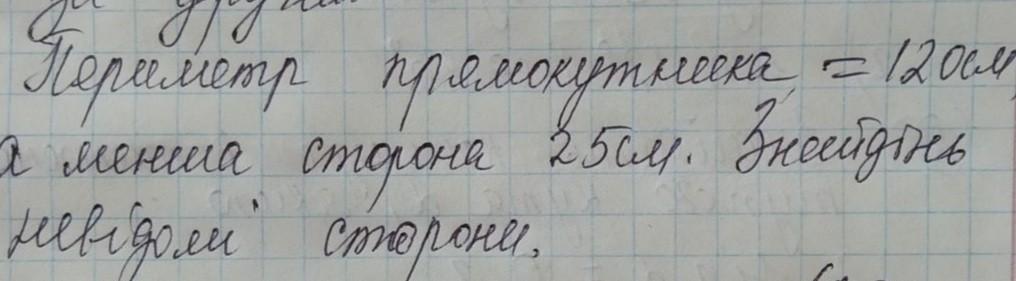 за друг
Периметр прямокутника = 120см,
а менша сторона 25см. Знайдіть
невідомі сторони.